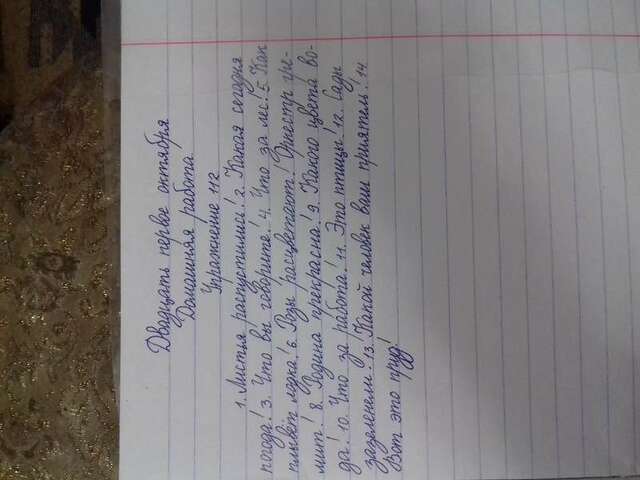 Двадцать первое октября
Домашняя работа
Упражнение 112
1. Листья распустились! 2. Какая сегодня
погода! 3. Что вы говорите! 4. Что за лес! 5. Как
плывёт лодка! 6. Розы расцветают! Оркестр гре-
мит! 8. Родина прекрасна! 9. Какого цвета во-
да! 10. Что за работа! 11. Это птицы! 12. Сады
зазеленели! 13. Какой человек ваш приятель! 14
Вот это пруд!